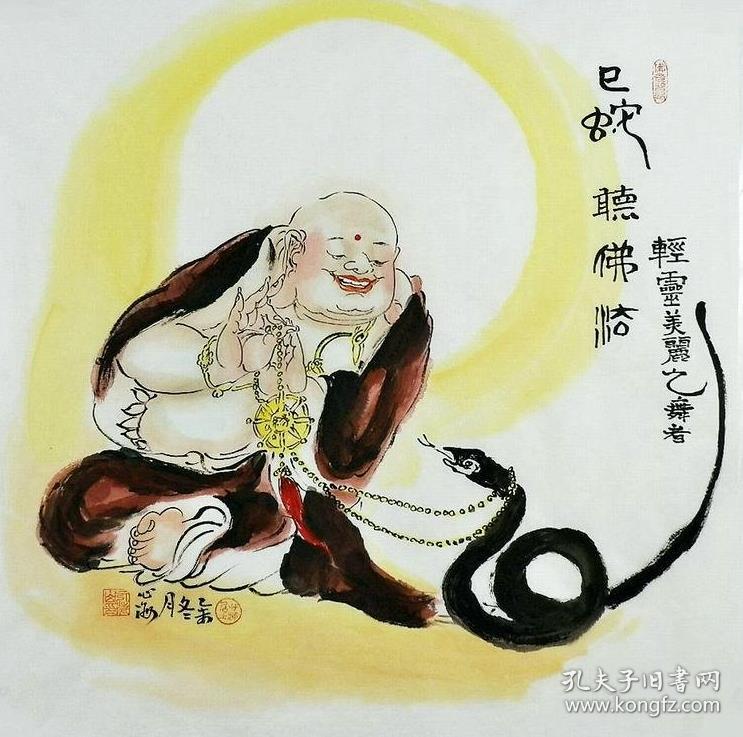 巳蛇
聽佛法
輕靈美麗之舞者
心海
冬月
孔夫子旧书网
www.kongfz.com